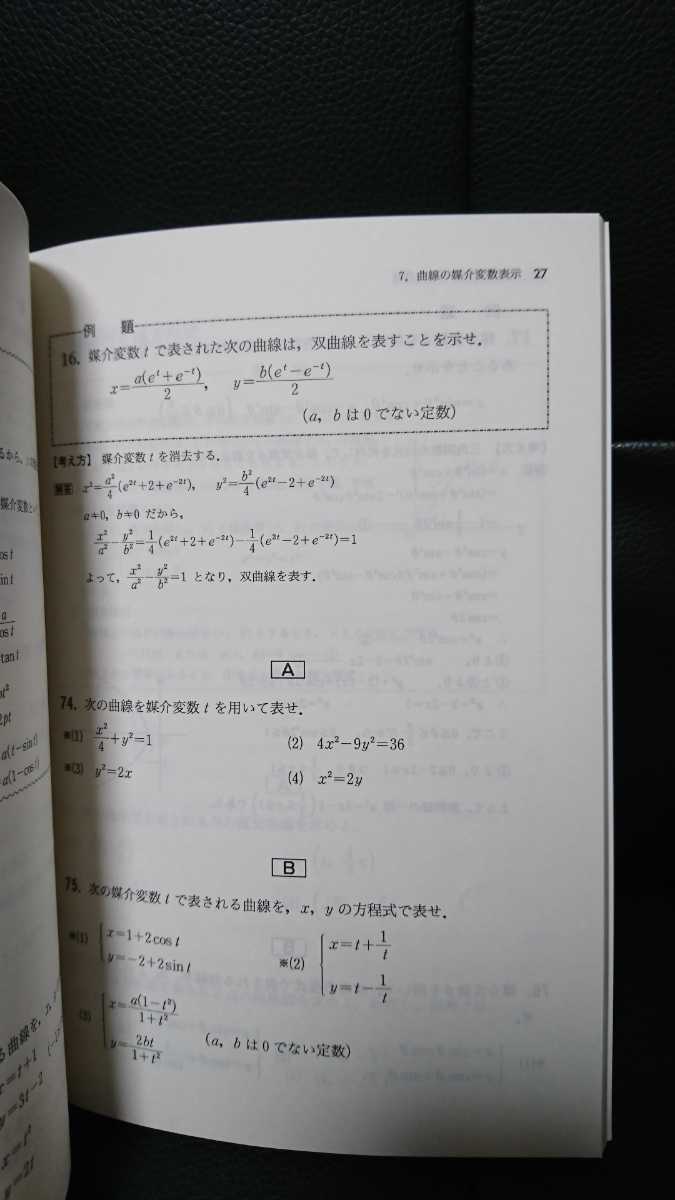 7. 曲線の媒介変数表示 27
例 題
16. 媒介変数 t で表された次の曲線は，双曲線を表すことを示せ．
x=a(e^t+e^{-t})/2, y=b(e^t-e^{-t})/2
(a, b は 0 でない定数)
【考え方】 媒介変数 t を消去する．
解答 x²=a²/4(e^{2t}+2+e^{-2t}), y²=b²/4(e^{2t}-2+e^{-2t})
a≠0, b≠0 だから，
x²/a²-y²/b²=1/4(e^{2t}+2+e^{-2t})-1/4(e^{2t}-2+e^{-2t})=1
よって，x²/a²-y²/b²=1 となり，双曲線を表す．
A
74. 次の曲線を媒介変数 t を用いて表せ．
※(1) x²/4+y²=1 (2) 4x²-9y²=36
※(3) y²=2x (4) x²=2y
B
75. 次の媒介変数 t で表される曲線を，x, y の方程式で表せ．
※(1) { x=1+2cos t
y=-2+2sin t
※(2) { x=t+1/t
y=t-1/t
(3) { x=a(1-t²)/(1+t²)
y=2bt/(1+t²) (a, b は 0 でない定数)
るから，
媒介変数
os t
in t
a
os t
tan t
pt²
2pt
a(t-sin t)
a(1-cos t)
る曲線を，x,
x=t+1
y=3t-2
x=t²
y=2t